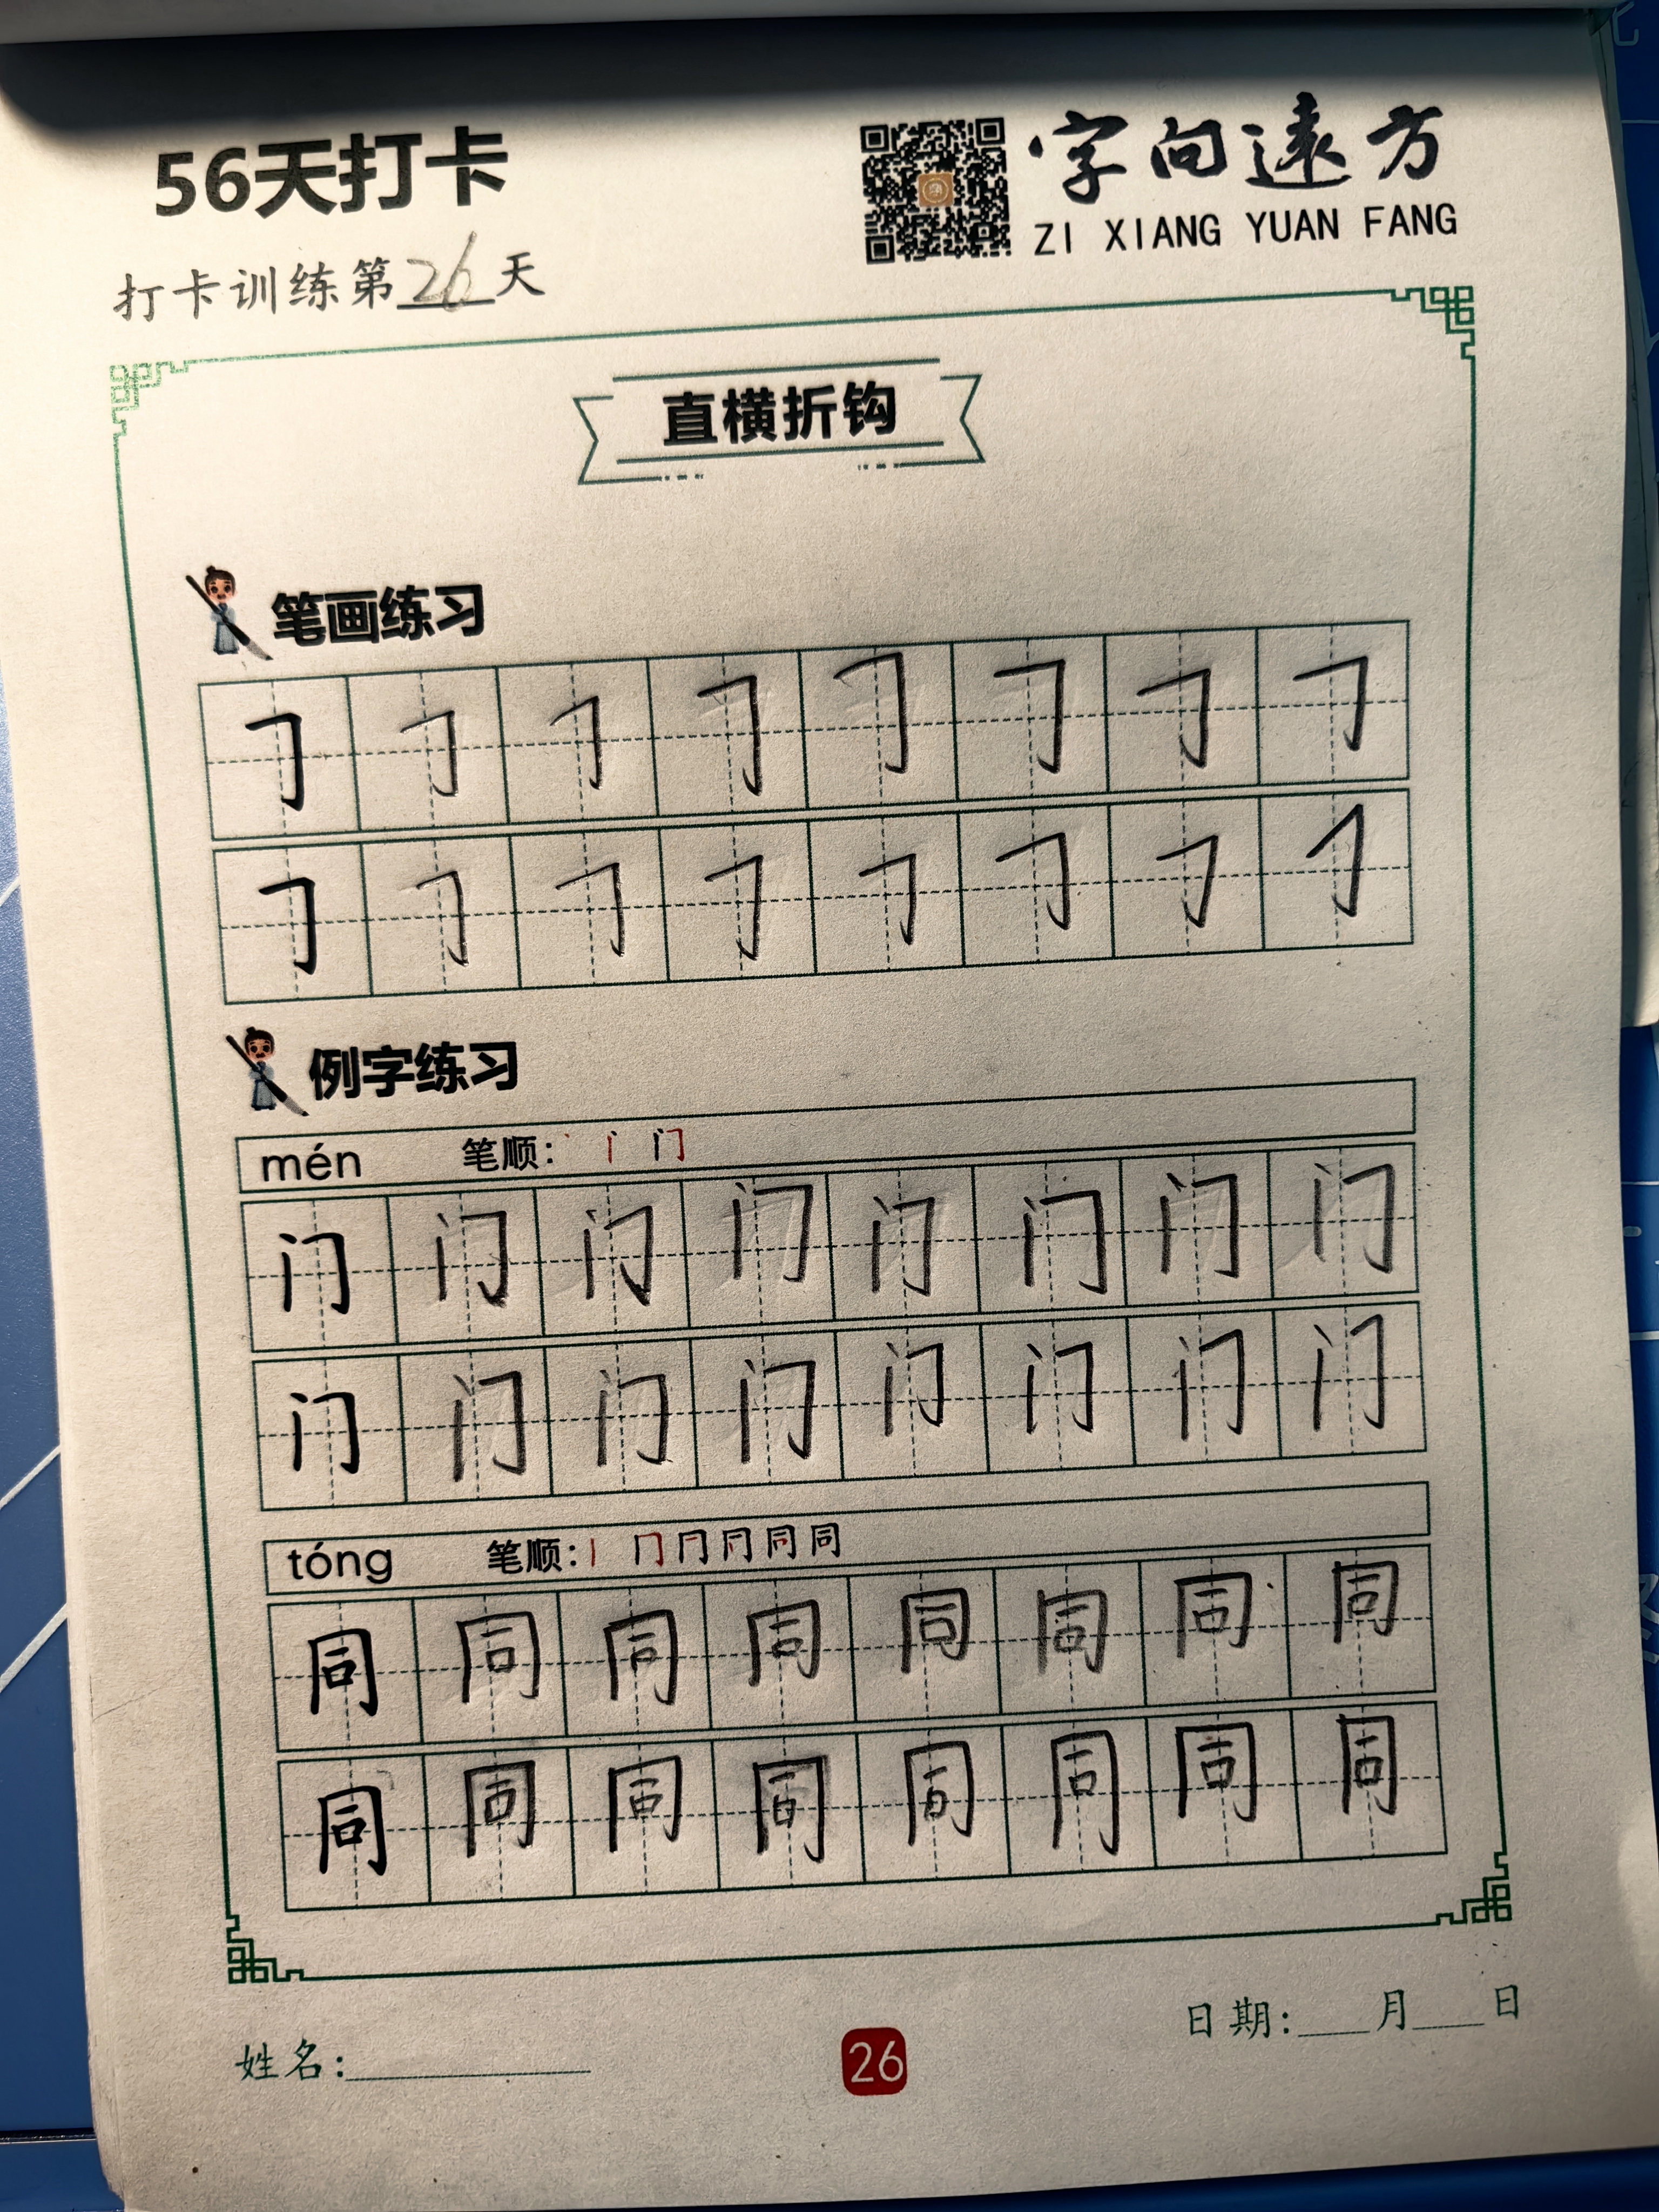 56天打卡
字向遠方
ZI XIANG YUAN FANG
打卡训练第26天
直横折钩
笔画练习
𠃌 𠃌 𠃌 𠃌 𠃌 𠃌 𠃌 𠃌
𠃌 𠃌 𠃌 𠃌 𠃌 𠃌 𠃌 𠃌
例字练习
mén 笔顺: 丶 丨 门
门 门 门 门 门 门 门 门
门 门 门 门 门 门 门 门
tóng 笔顺: 丨 冂 同 同
同 同 同 同 同 同 同 同
同 同 同 同 同 同 同 同
姓名:
26
日期: 月 日